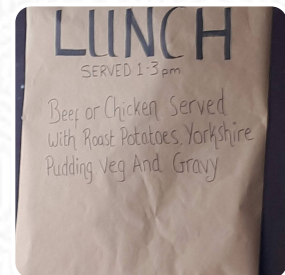 LUNCH
SERVED 1-3pm
Beef or Chicken Served
with Roast Potatoes, Yorkshire
Pudding Veg And Gravy